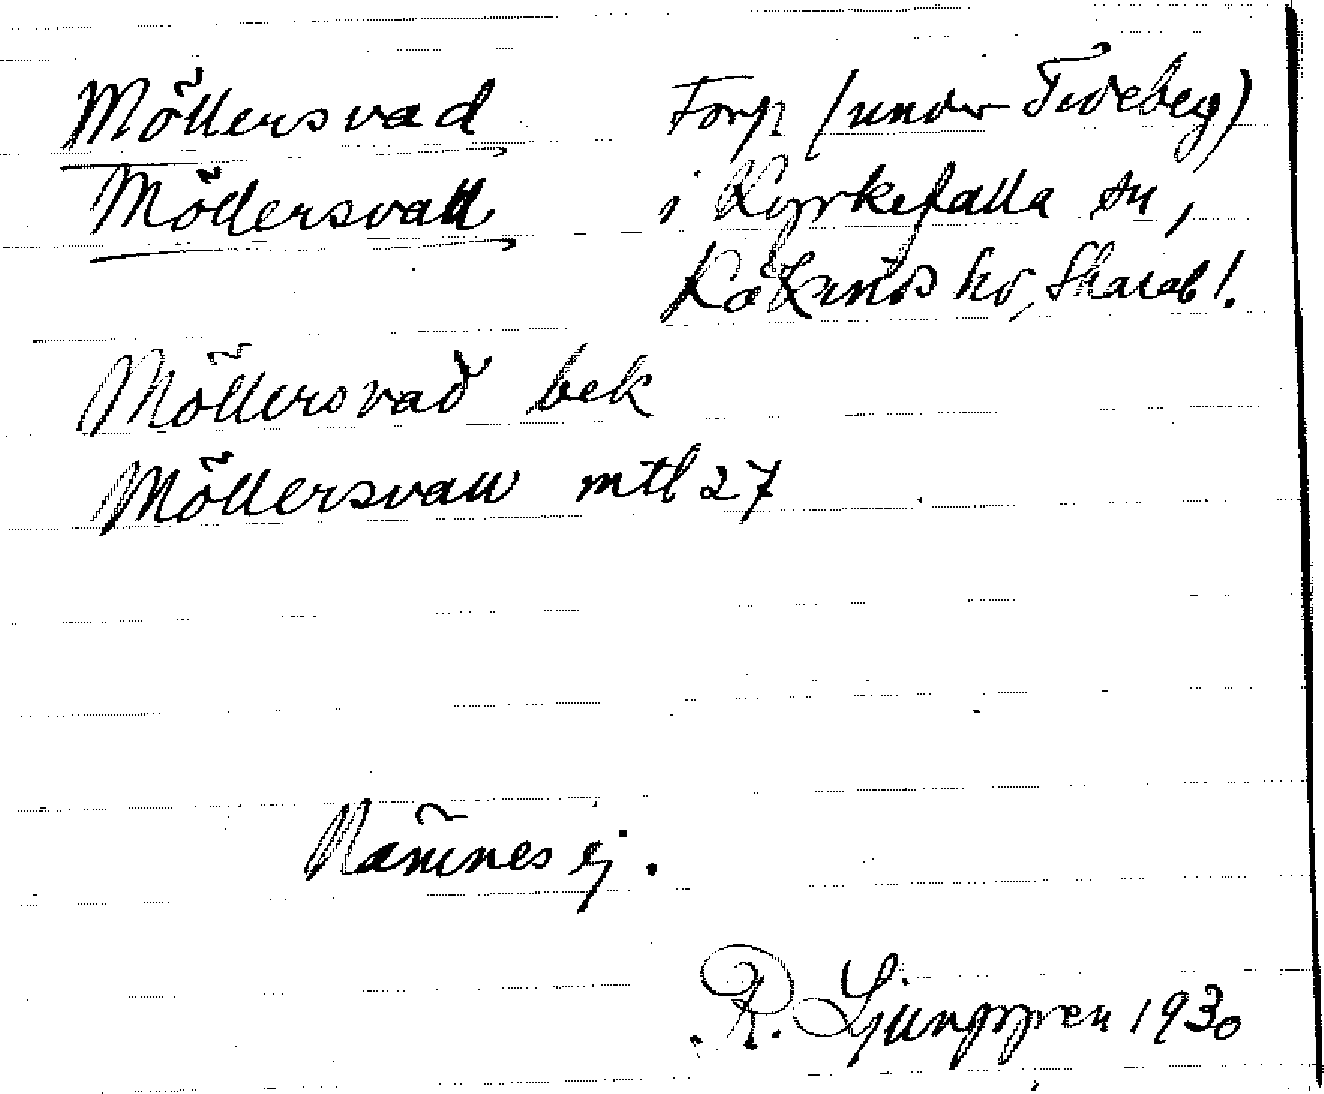 Möllersvad Torp (under Tideberg)
Möllersvall i Kyrkefalla sn,
Kåkinds hd, Skarab l.
Möllersvad bek
Möllersvall mtl 27
Nämnes ej.
R. Ljunggren 1930